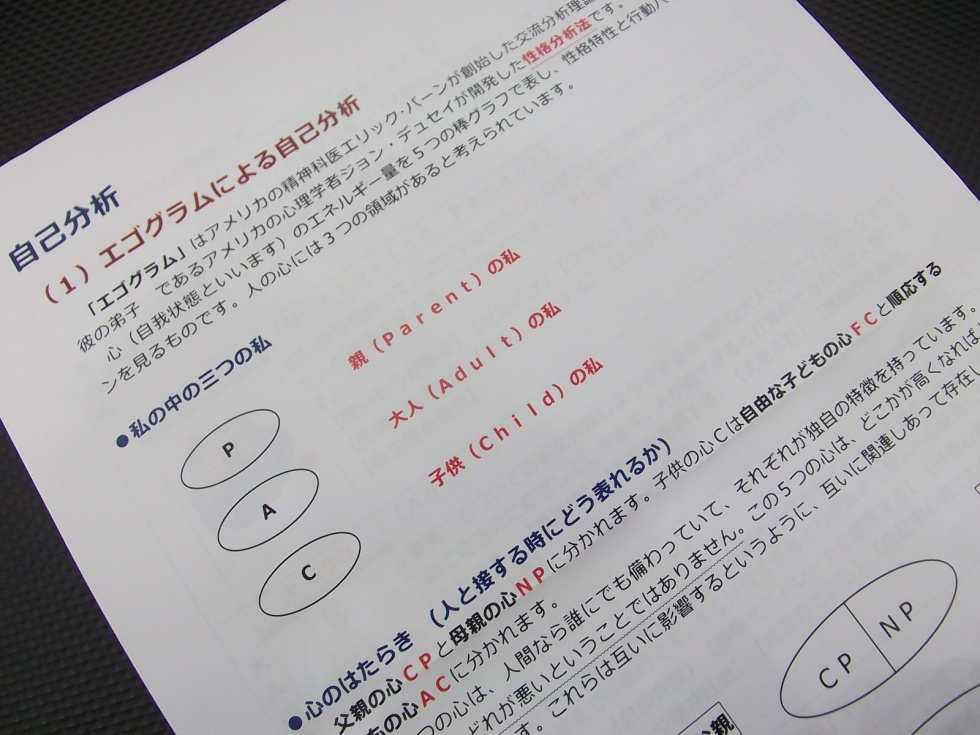 自己分析
(1) エゴグラムによる自己分析
「エゴグラム」はアメリカの精神科医エリック・バーンが創始した交流分析理論
彼の弟子 であるアメリカの心理学者ジョン・デュセイが開発した性格分析法です。
心(自我状態といいます)のエネルギー量を5つの棒グラフで表し、性格特性と行動パ
ンを見るものです。人の心には3つの領域があると考えられています。
●私の中の三つの私
P 親(Parent)の私
A 大人(Adult)の私
C 子供(Child)の私
●心のはたらき (人と接する時にどう表れるか)
父親の心CPと母親の心NPに分かれます。子供の心Cは自由な子どもの心FCと順応する
もの心ACに分かれます。
つの心は、人間なら誰にでも備わっていて、それぞれが独自の特徴を持っています。
どれが悪いということではありません。この5つの心は、どこかが高くなれば
す。これらは互いに影響するというように、互いに関連しあって存在し
CP NP